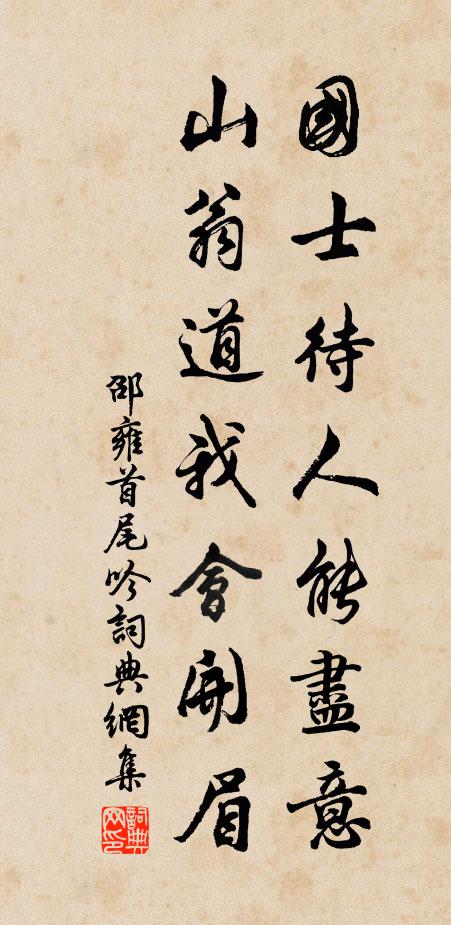 國士待人能盡意
山翁道我會開眉
邵雍首尾吟詞典網集
詞典网印